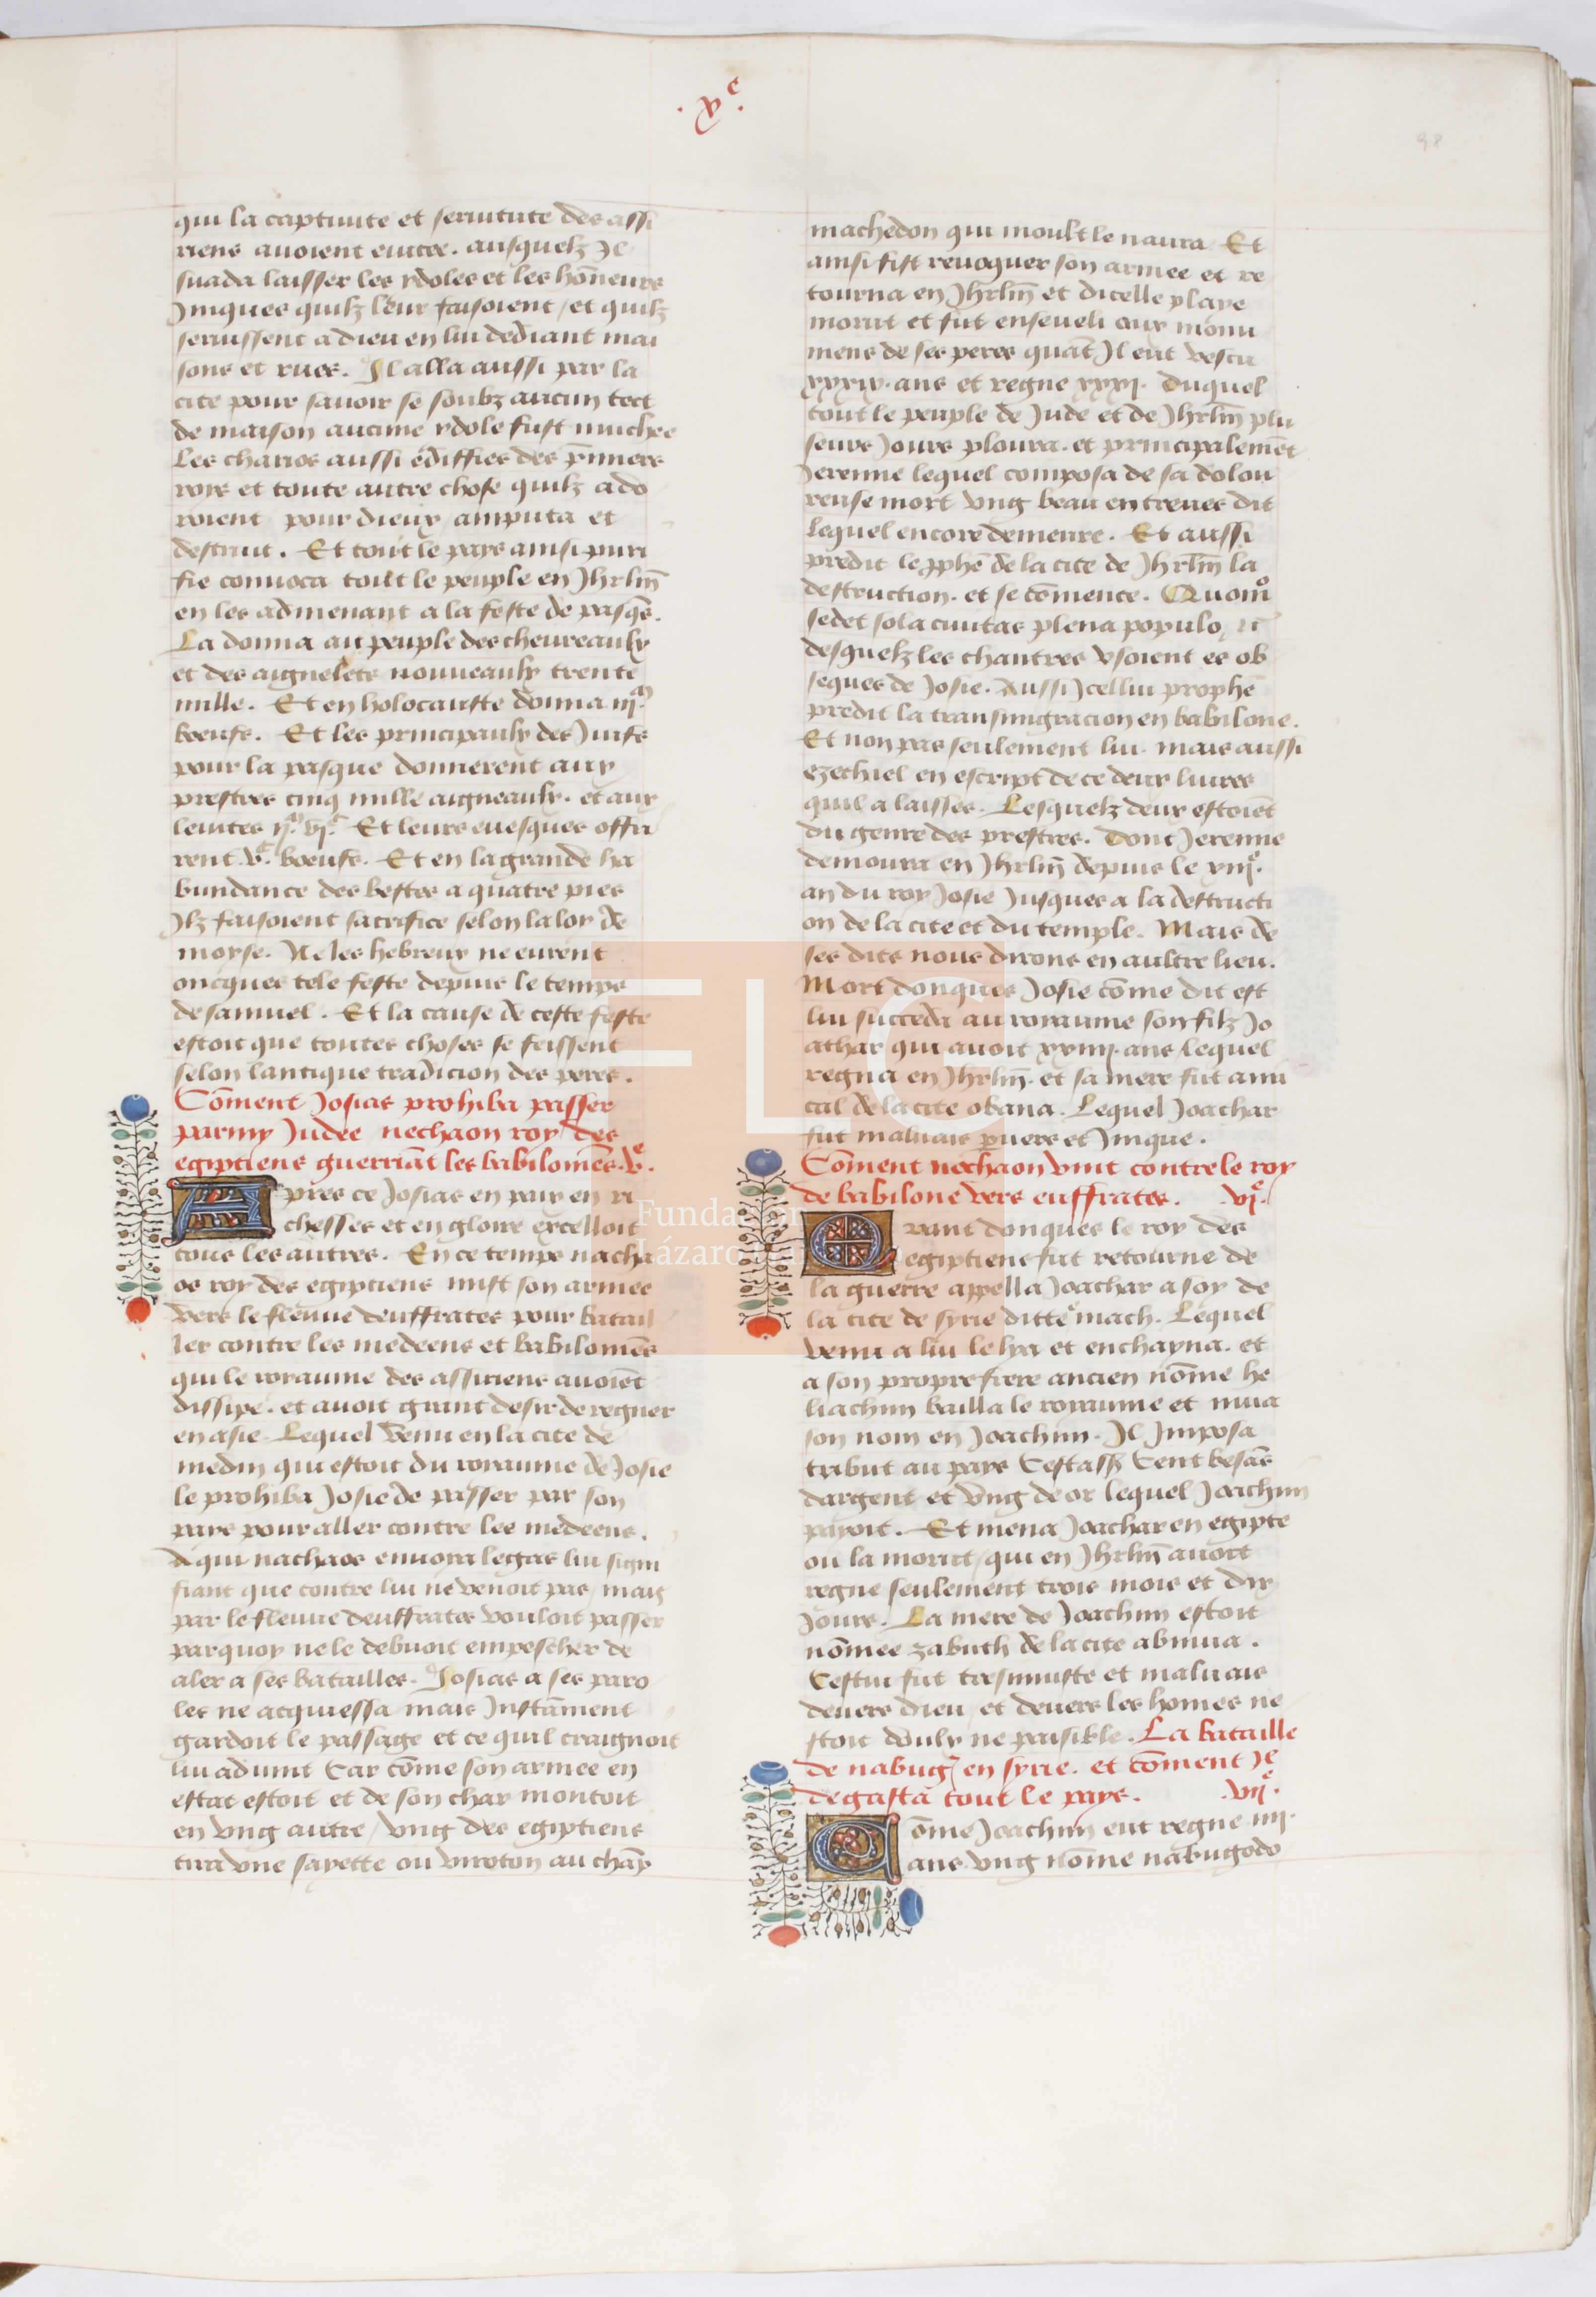 .xe.
98
qui la captiuite et seruitute des assi
riens auoient euitee. ausquelz Il
suada laisser les ydoles et les hōneurs
Iniques quilz leur faisoient / et quilz
seruissent a dieu en lui dediant mai
sons et rues. Il alla aussi par la
cite pour sauoir se soubz aucun tect
de maison aucune ydole fust muchee
Les charios aussi ediffies des p̄miers
roys et toute autre chose quilz ado
roient pour dieux amputa et
destruit. Et tout le pays ainsi puri
fie conuoca tout le peuple en Jhrl̄m
en les admenant a la feste de pasq̄s.
La donna au peuple des cheureaulx
et des aignelets nouueaulx trente
mille. Et en holocauste donna iijᵐ.
boeufs. Et les principaulx des Juifs
pour la pasque donnerent aux
prestres cinq mille aigneaulx. et aux
leuites ijᵐ. vjᶜ. Et leurs euesques offri
rent .vᶜ. boeufs. Et en la grande ha
bundance des bestes a quatre pies
Ilz faisoient sacrifice selon la loy de
moyse. Ne les hebreux ne eurent
oncques tele feste depuis le temps
de samuel. Et la cause de ceste feste
estoit que toutes choses se feissent
selon lantique tradicion des peres.
Cōment Josias prohiba passer
parmy Judee nechaon roy des
egiptiens guerriāt les babiloniēs. vᵉ.
Apres ce Josias en paix en ri
chesses et en gloire excelloit
tous les autres. En ce temps nacha
os roy des egiptiens mist son armee
vers le fleuue deuffrates pour batail
ler contre les medeens et babiloniēs
qui le royaume des assiriens auoiēt
dissipe. et auoit grant desir de regner
en asie. Lequel venu en la cite de
medin qui estoit du royaume de Josie
le prohiba Josie de passer par son
pays pour aller contre les medeens.
A qui nachaos enuoya legas lui signi
fiant que contre lui ne venoit pas / mais
par le fleuue deuffrates vouloit passer
parquoy ne le debuoit empescher de
aler a ses batailles. Josias a ses paro
les ne acquiessa mais Instāment
gardoit le passage et ce quil craignoit
lui aduint Car cōme son armee en
estat estoit et de son char montoit
en vng autre / vng des egiptiens
tira vne sayette ou viroton au chāp
machedon qui moult le naura Et
ainsi fist reuoquer son armee et re
tourna en Jhrl̄m et dicelle playe
morut et fut enseueli aux monu
mens de ses peres quāt Il eut vescu
xxxix. ans et regne xxxj. Duquel
tout le peuple de Jude et de Jhrl̄m plu
seurs Jours ploura. et principalemēt
Jeremie lequel composa de sa dolou
reuse mort vng beau entreues dit
lequel encore demeure. Et aussi
predit le ꝓphē de la cite de Jhrl̄m la
destruction. et se cōmence. Quomº
sedet sola ciuitas plena populo,
desquelz les chantres vsoient es ob
seques de Josie. Aussi Icellui prophē
predit la transmigracion en babilone.
Et non pas seulement lui. mais aussi
ezechiel en escript de ce deux liures
quil a laisses. Lesquelz deux estoiēt
du genre des prestres. Dont Jeremie
demoura en Jhrl̄m depuis le xiijᵉ.
an du roy Josie Jusques a la destructi
on de la cite et du temple. Mais de
ses dits nous dirons en aultre lieu.
Mort donques Josie cōme dit est
lui succeda au royaume son filz Jo
athar qui auoit xxiiij. ans lequel
regna en Jhrl̄m. et sa mere fut ami
cal de la cite obana. Lequel Joachar
fut maluais puers et Inique.
Cōment nechaon vint contre le roy
de babilone vers euffrates. vjᵉ.
Quant donques le roy des
egiptiens fut retourne de
la guerre appella Joachar a soy de
la cite de syrie ditte mach. Lequel
venu a lui le lya et enchayna. et
a son propre frere ancien nōme he
liachim bailla le royaume et mua
son nom en Joachim. Il Imposa
tribut au pays Cestassc̄ Cent besās
dargent et vng de or lequel Joachim
payoit. Et mena Joachar en egipte
ou la morut / qui en Jhrl̄m auoit
regne seulement trois mois et dix
Jours. La mere de Joachim estoit
nōmee zabuth de la cite abinua.
Cestui fut tresiniuste et maluais
deuers dieu et deuers les homes ne
stoit doulx ne paisible. La bataille
de nabug̃ en syrie. et cōment Il
degasta tout le pays. .vijᵉ.
Cōme Joachim eut regne iiij.
ans. vng nōme nabugodo
FLG
Fundación
Lázaro